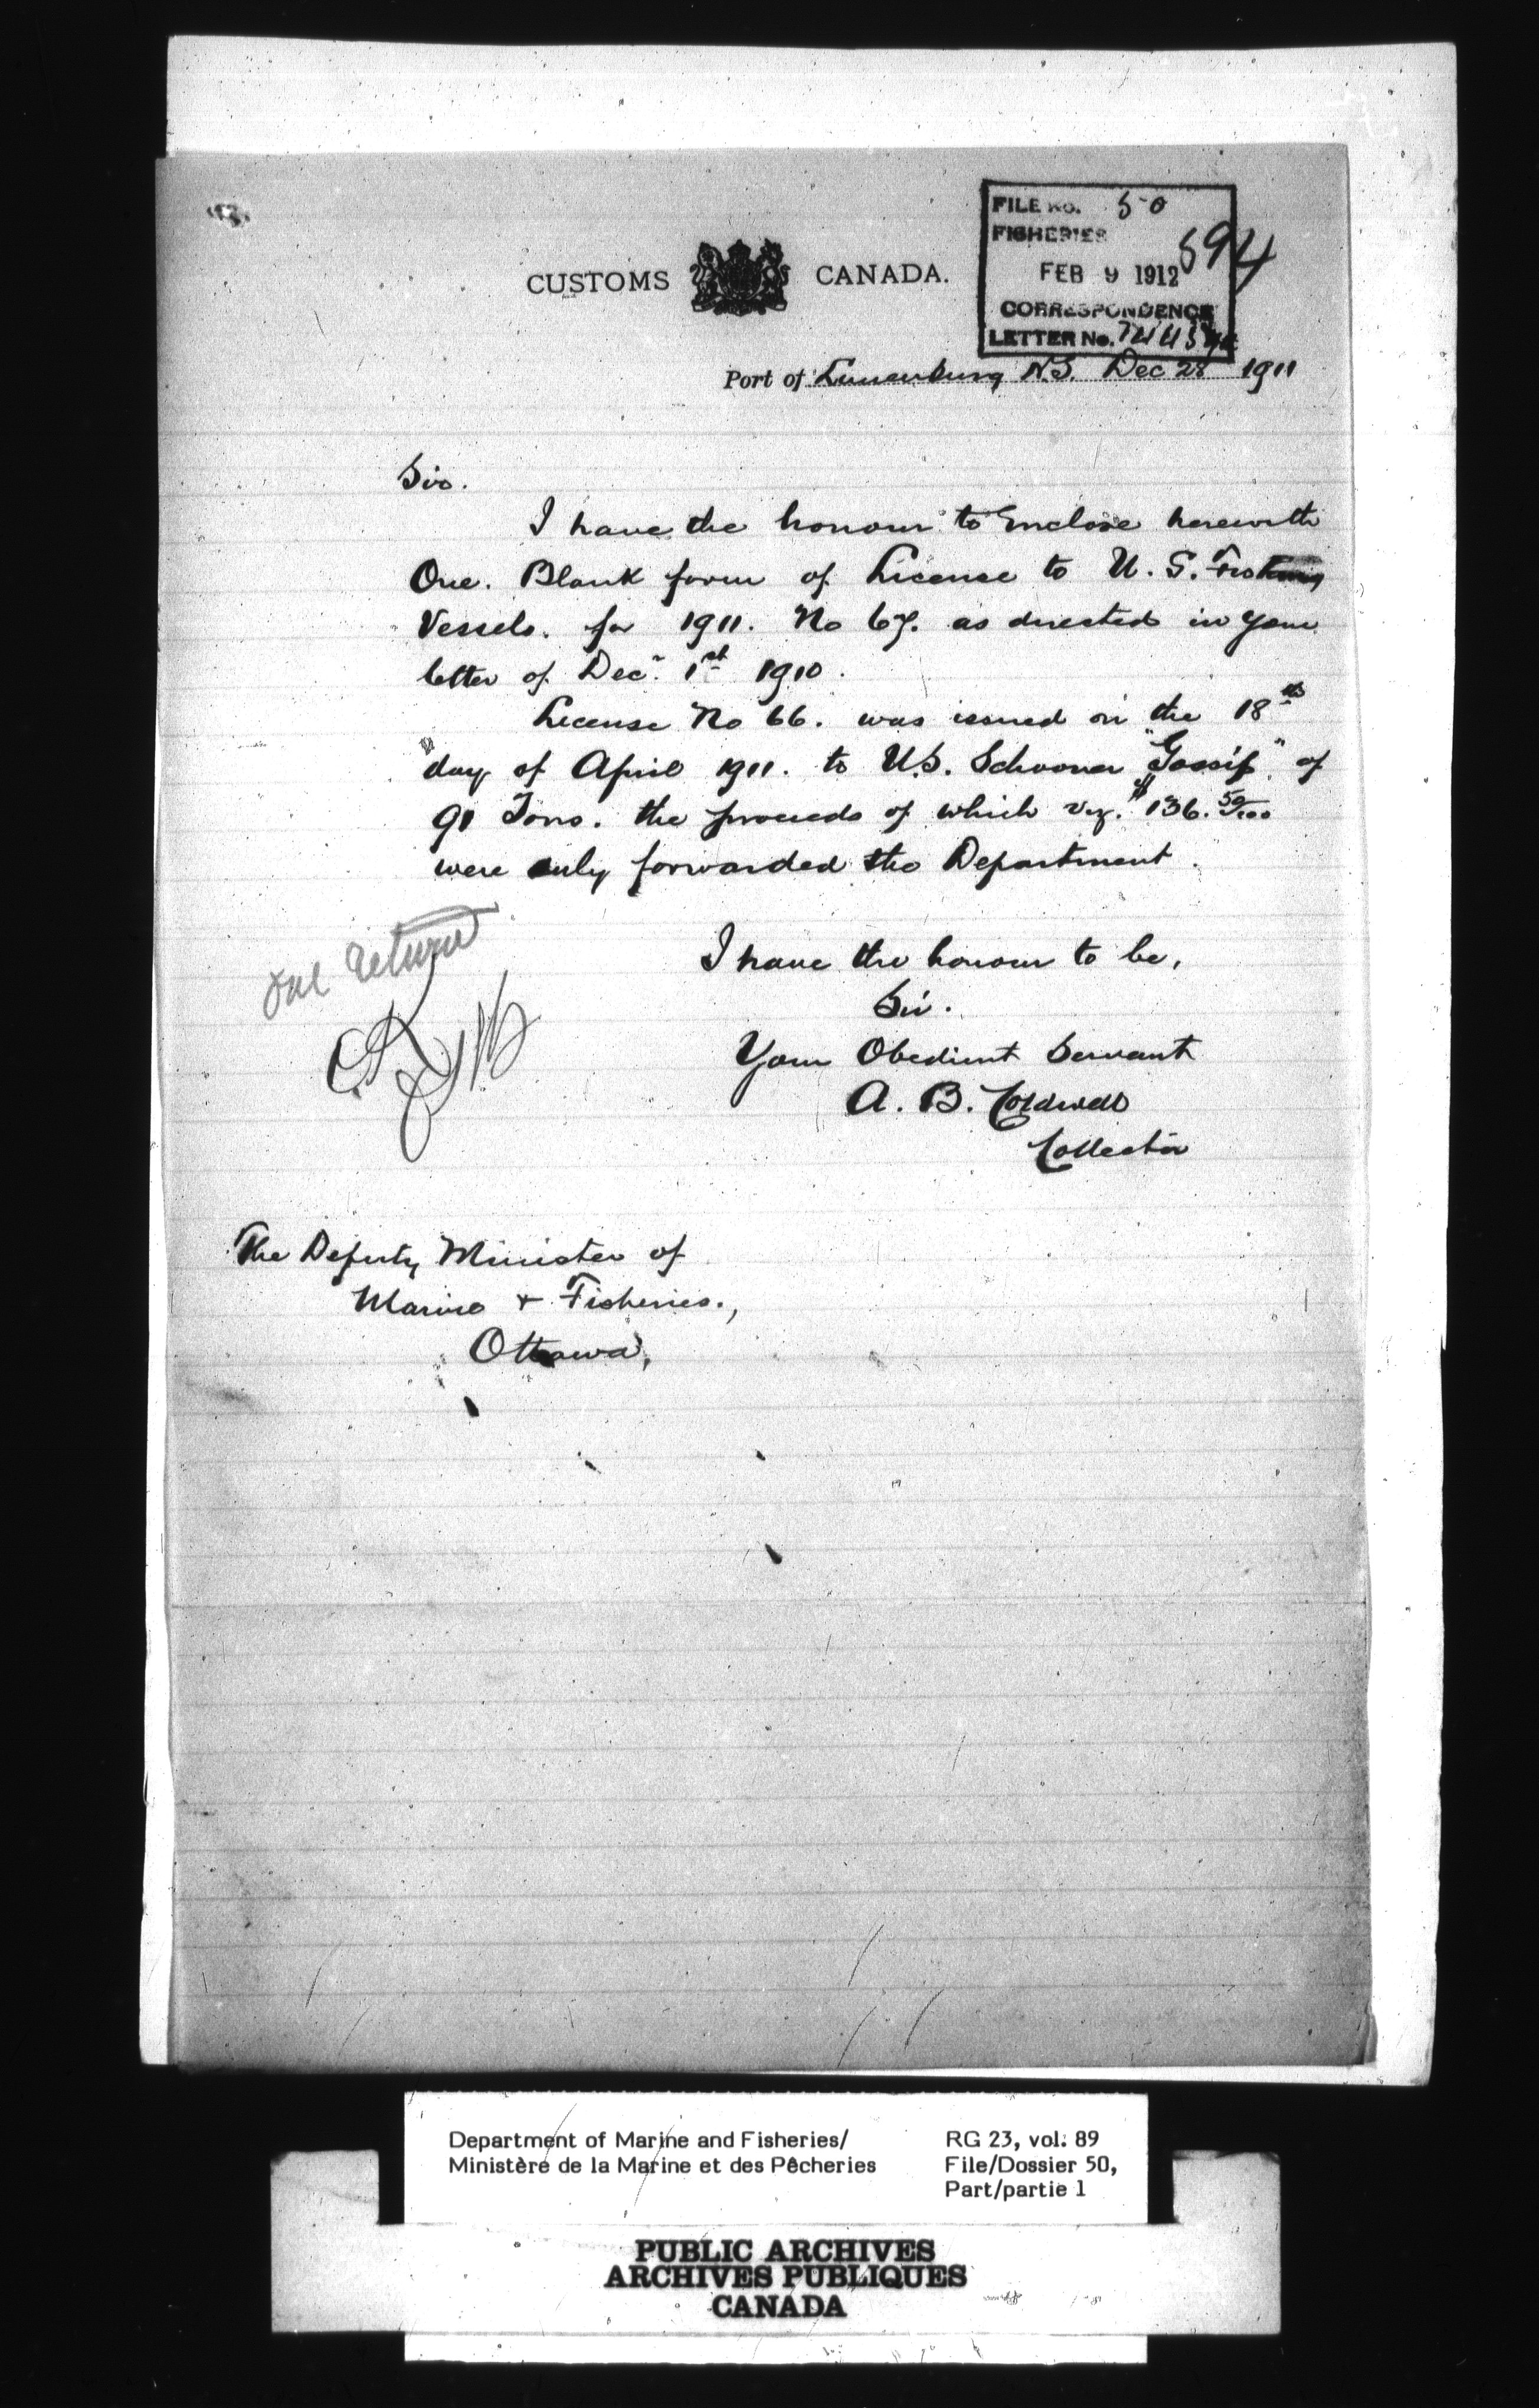 FILE No. 50
FISHERIES
594
FEB 9 1912
CORRESPONDENCE
LETTER No.
CUSTOMS CANADA.
Port of Lunenburg N.S. Dec 28 1911
Sir.
I have the honour to Enclose herewith
One. Blank form of License to U. S. Fishing
Vessels. for 1911. No 67. as directed in your
letter of Decr. 1st 1910.
License No 66. was issued on the 18th
day of April 1911. to U.S. Schooner "Gossip" of
91 Tons. the proceeds of which viz. $136.50/100
were duly forwarded the Department.
I have the honour to be,
Sir.
Your Obedient Servant
A. B. Coldwell
Collector
return
The Deputy Minister of
Marine & Fisheries.,
Ottawa,
Department of Marine and Fisheries/
Ministère de la Marine et des Pêcheries
RG 23, vol. 89
File/Dossier 50,
Part/partie 1
PUBLIC ARCHIVES
ARCHIVES PUBLIQUES
CANADA